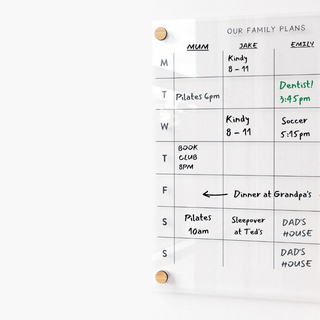 OUR FAMILY PLANS
MUM JAKE EMILY
M Kindy
8 - 11
T Pilates 6pm Dentist!
3:45pm
W Kindy
8 - 11 Soccer
5:15pm
T BOOK
CLUB
8PM
F ← Dinner at Grandpa's
S Pilates
10am Sleepover
at Ted's DAD'S
HOUSE
S DAD'S
HOUSE